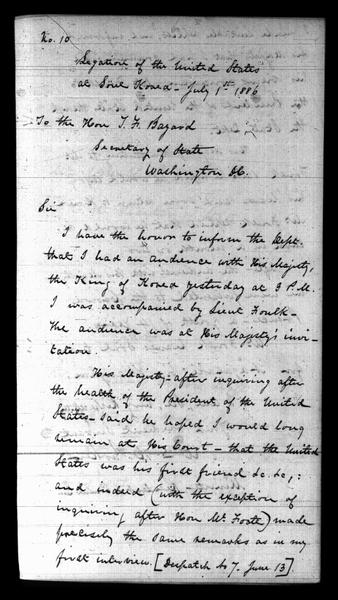 No. 10
Legation of the United States
at Söul Korea - July 1st 1886
To the Hon T. F. Bayard
Secretary of State
Washington D.C.
Sir
I have the honor to inform the Dept.
that I had an audience with His Majesty,
the King of Korea yesterday at 3 P.M.
I was accompanied by Lieut Foulk -
The audience was at His Majesty's invi-
tation.
His Majesty - after inquiring after
the health of the President of the United
States - said he hoped I would long
remain at His Court - that the United
States was his first friend &c. &c.;
and indeed (with the exception of
inquiring after Hon Mr. Foote) made
precisely the same remarks as in my
first interview. [Dispatch No 7. June 13].